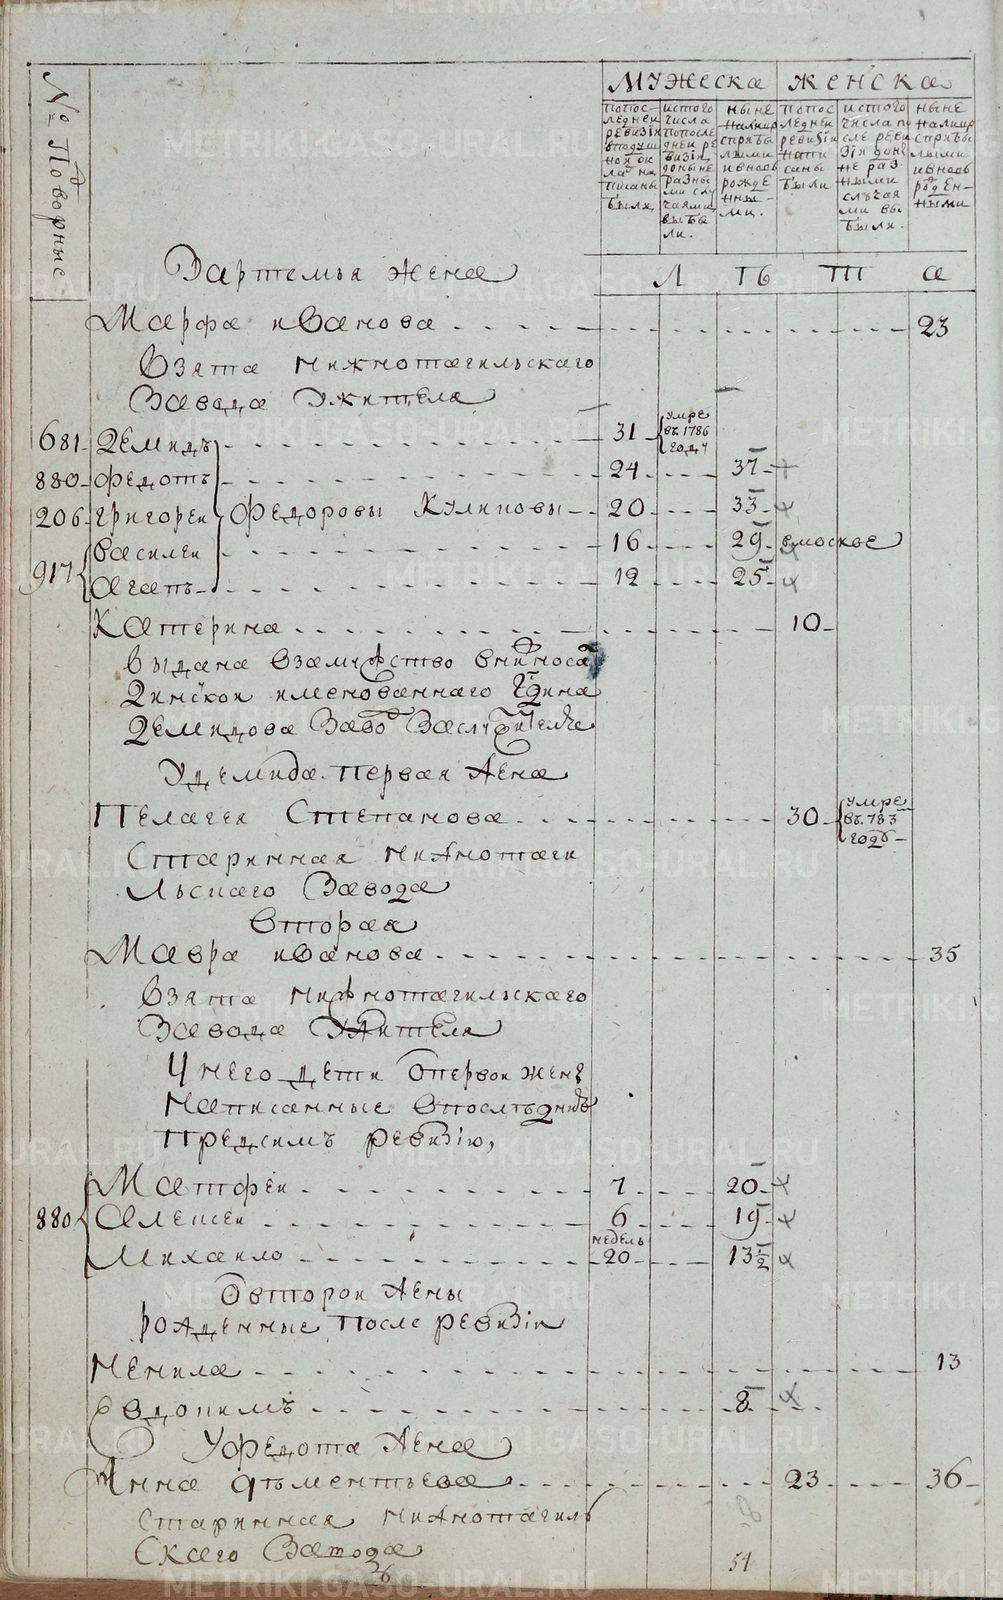 METRIKI.GASO-URAL.RU
№ Подворные
мужеска женска
попос-
ледней
ревизiи
вподуш
ной ок
ладъ на
писаны
были
истого
числа
попосле
дней ре
визiи
доныне
разны
ми слу
чаями
выбы
ли.
ныне
налицо
сприбы
лыми
ивновь
рожде
нны-
ми.
попос
ледней
ревизiи
напи
саны
были
истого
числа по
сле реви
зiи доны
не раз
ными
случая
ми вы
были.
ныне
налицо
сприбы
лыми
ивновь
рожден-
ными
Уартемья жена
л ть т а
Марфа иванова 23
Взята нижнотагильскаго
Завода Ужителя
681 Демидъ 31 умре въ 1786 году
880 Федотъ 24 37
206 Григореи Федоровы Куликовы 20 33
917 Василеи 16 29 вмоскве
Агапъ 12 25
Катерина 10
выдана взамужство
именованнаго
Демидова
Удемида первая жена
Пелагея Степанова 30 умре въ 783 годе
Старинная нижнотаги
льскаго Завода
вторая
Мавра иванова 35
Взята нижнотагильскаго
Завода Ужителя
Унего дети отпервои жены
написанные впоследнюю
предсимъ ревизiю,
880 Матфеи 7 20
Алексеи 6 19
недель
Михаило 20 13 1/2
отвторои жены
рожденные после ревизiи
Ненила 13
Евдокимъ 8
Уфедота жена
Анна Клементьева 23 36
Старинная нижнотагиль
скаго Завода
51